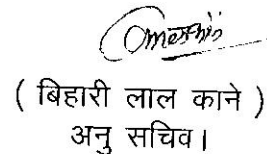 ( बिहारी लाल काने )
अनु सचिव।